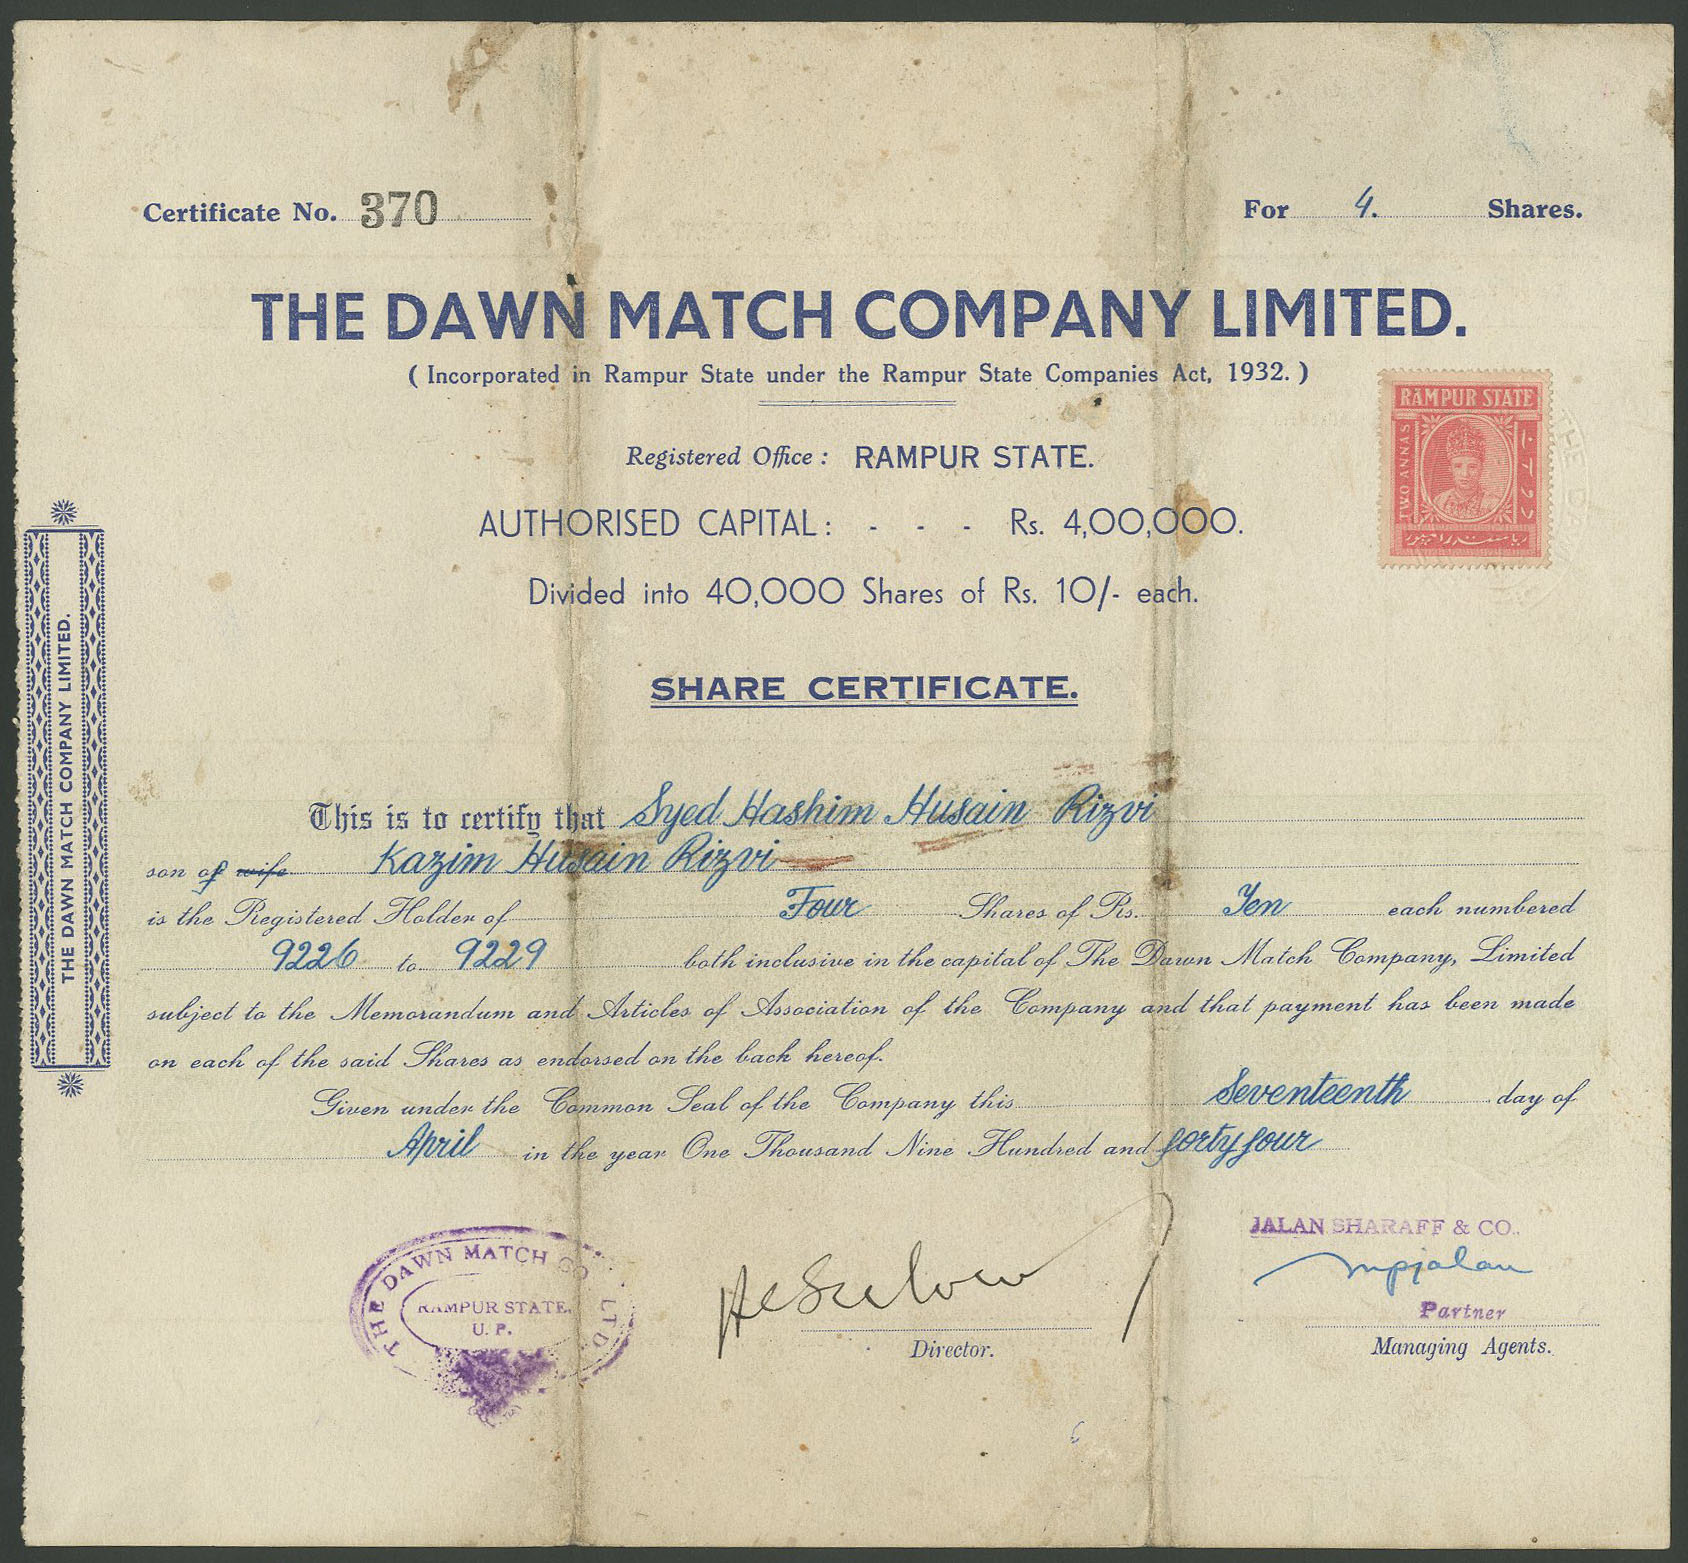 Certificate No. 370 For 4. Shares.
THE DAWN MATCH COMPANY LIMITED.
( Incorporated in Rampur State under the Rampur State Companies Act, 1932. )
RAMPUR STATE
TWO ANNAS
Registered Office : RAMPUR STATE.
AUTHORISED CAPITAL : - - - Rs. 4,00,000.
Divided into 40,000 Shares of Rs. 10/- each.
SHARE CERTIFICATE.
THE DAWN MATCH COMPANY LIMITED.
This is to certify that Syed Hashim Husain Rizvi
son of wife Kazim Husain Rizvi
is the Registered Holder of Four Shares of Rs. Ten each numbered
9226 to 9229 both inclusive in the capital of The Dawn Match Company, Limited
subject to the Memorandum and Articles of Association of the Company and that payment has been made
on each of the said Shares as endorsed on the back hereof.
Given under the Common Seal of the Company this Seventeenth day of
April in the year One Thousand Nine Hundred and forty four
THE DAWN MATCH CO. LTD.
RAMPUR STATE.
U. P.
Director.
JALAN SHARAFF & CO.
mpjalan
Partner
Managing Agents.